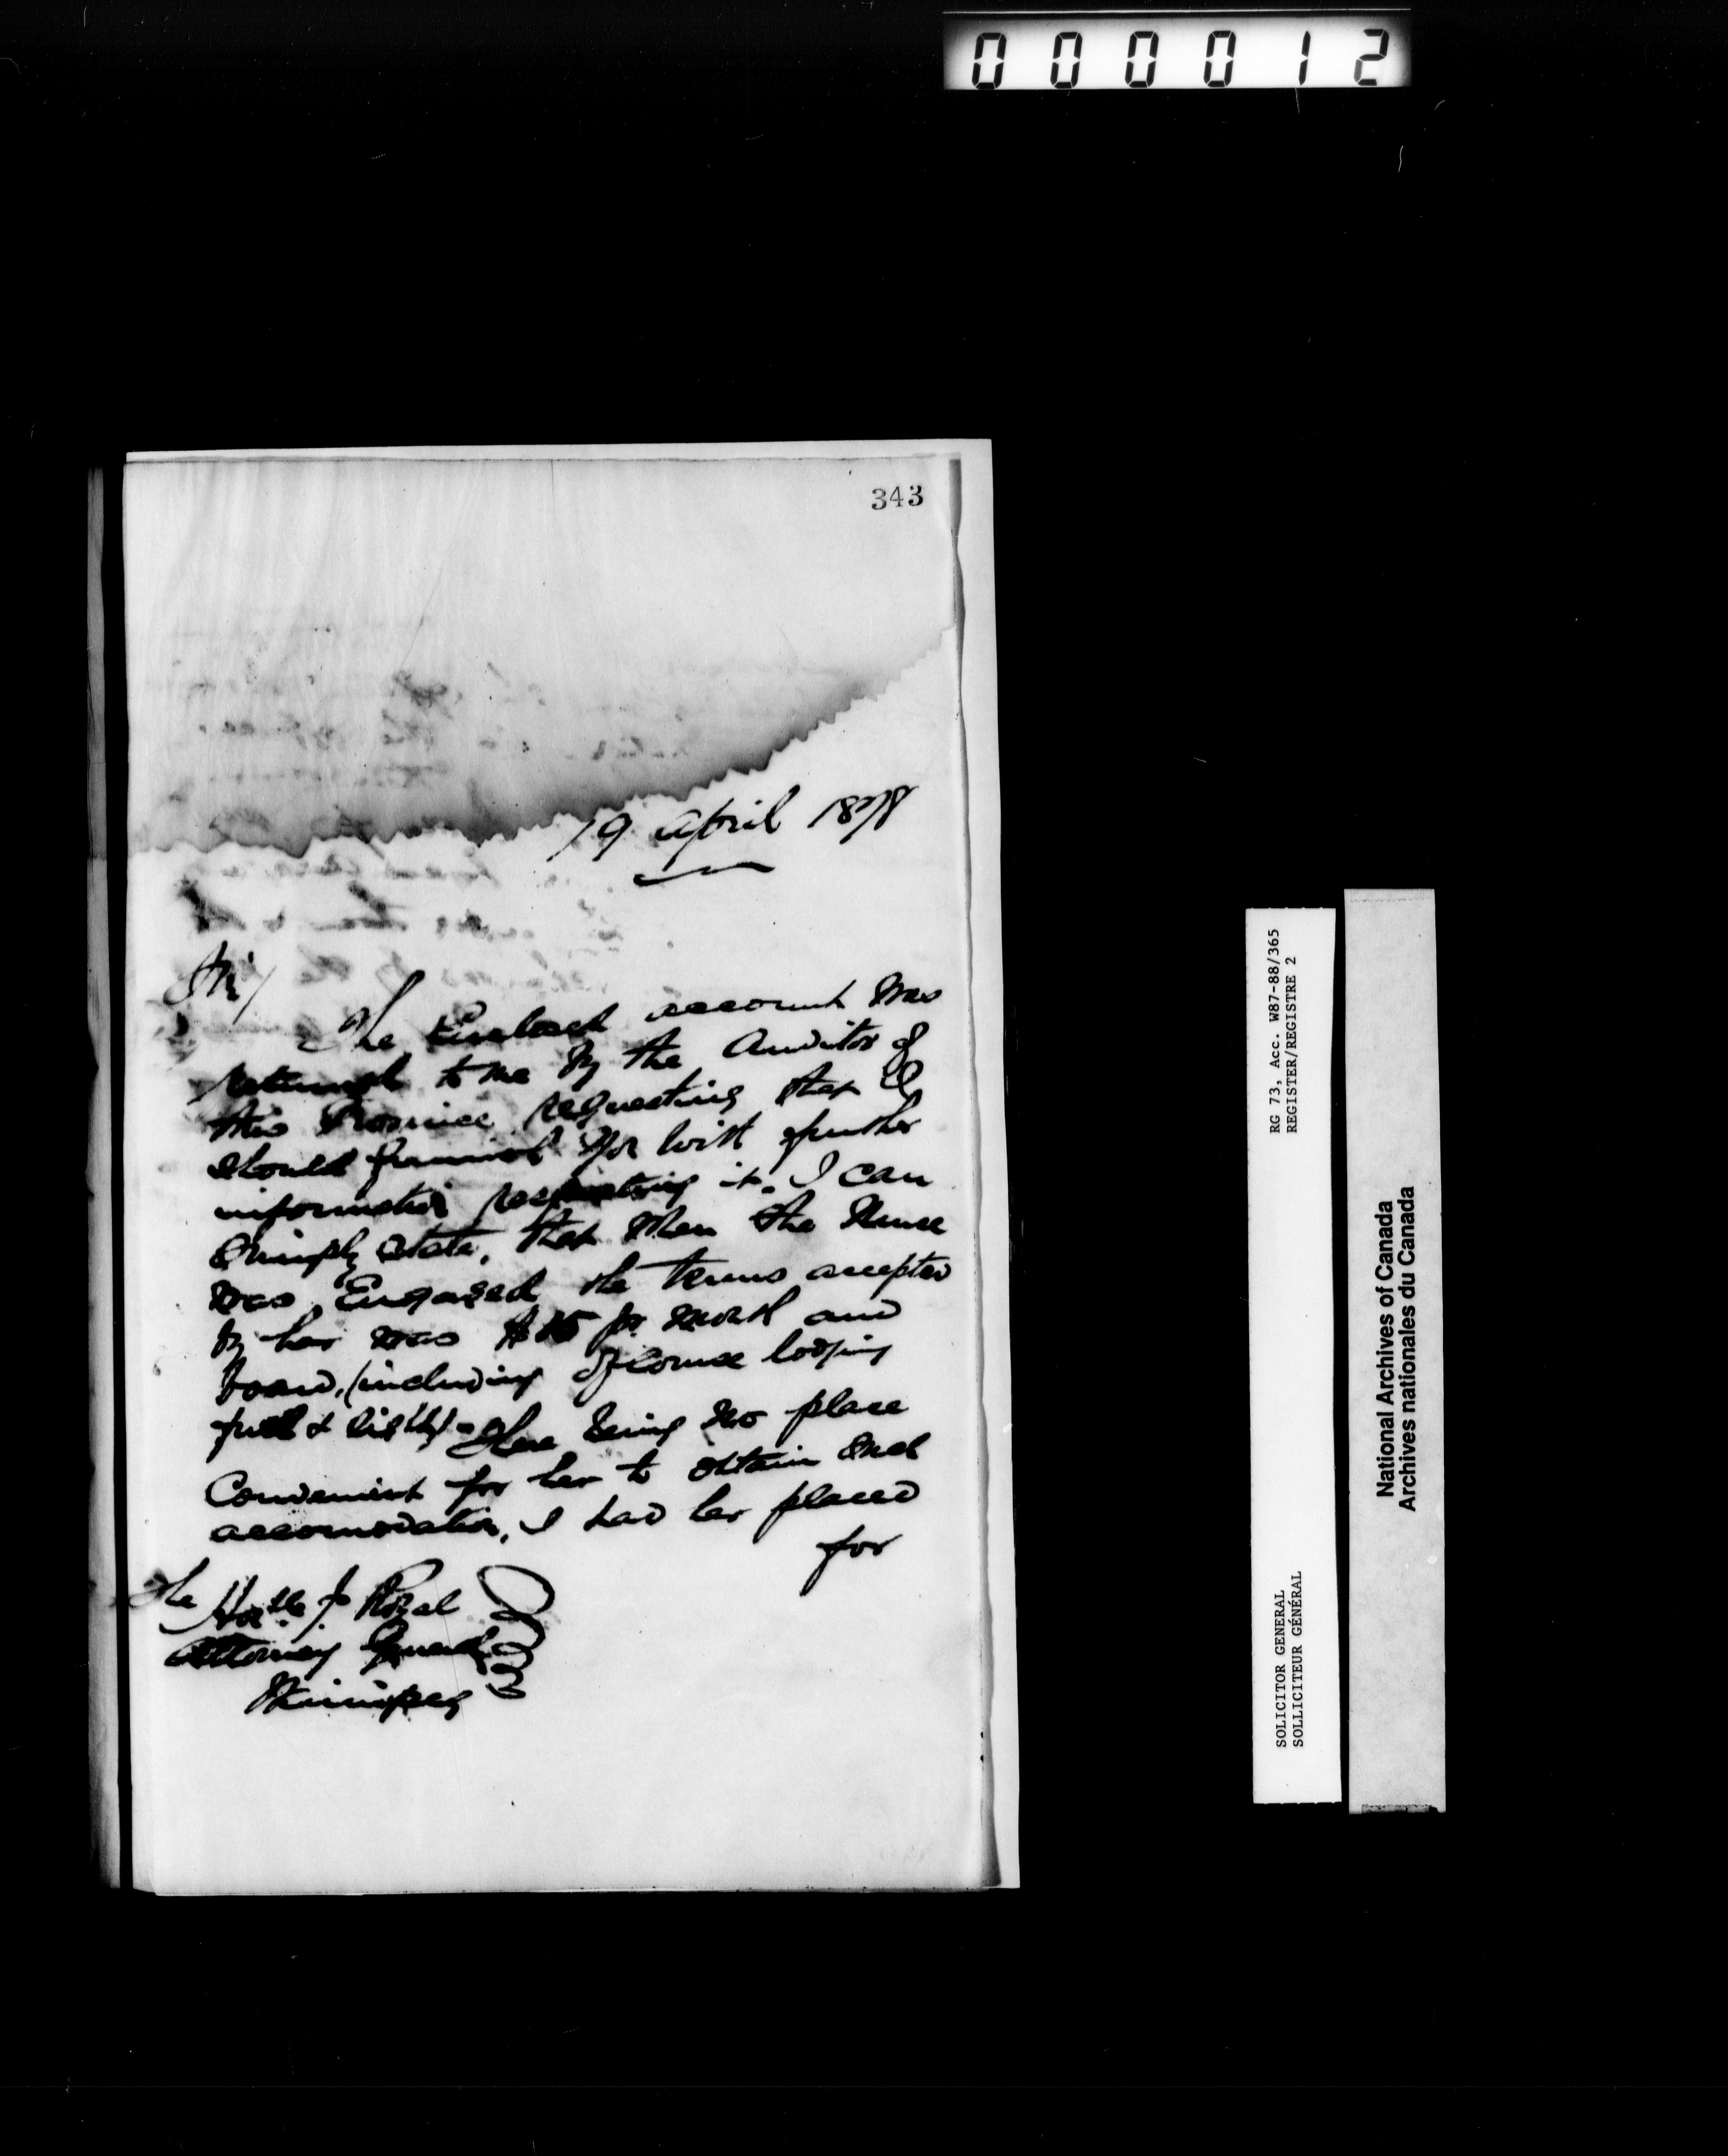 000012
343
19 April 1878
Sir/
The Enclosed account was
returned to me by the Auditor of
this Province requesting that I
should furnish you with further
information respecting it. I can
simply state, that when the Nurse
was Engaged the terms accepted
by her was $ pr month and
board, (including of course lodging
fuel & light) - There being no place
Convenient for her to obtain such
accomodation, I had her placed
for
The Honble J. Royal
Attorney General
Winnipeg
RG 73, Acc. W87-88/365
REGISTER/REGISTRE 2
SOLICITOR GENERAL
SOLLICITEUR GÉNÉRAL
National Archives of Canada
Archives nationales du Canada